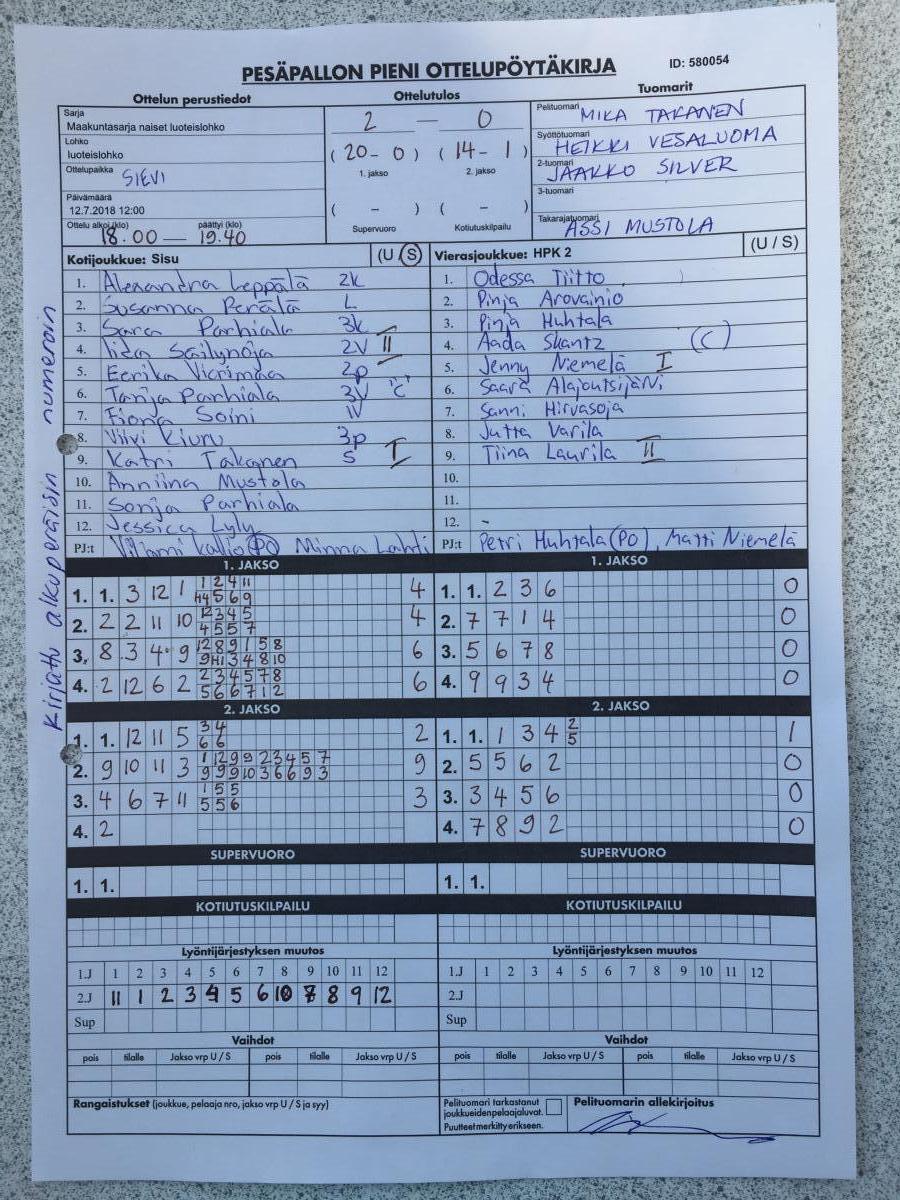 PESÄPALLON PIENI OTTELUPÖYTÄKIRJA ID: 580054
Ottelun perustiedot Ottelutulos Tuomarit
Sarja
Maakuntasarja naiset luoteislohko
Lohko
luoteislohko
Ottelupaikka SIEVI
Päivämäärä
12.7.2018 12:00
Ottelu alkoi (klo) päättyi (klo)
18.00 — 19.40
2 — 0
( 20 - 0 ) ( 14 - 1 )
1. jakso 2. jakso
( - ) ( - )
Supervuoro Kotiutuskilpailu
Pelituomari MIKA TAKANEN
Syöttötuomari HEIKKI VESALUOMA
2-tuomari JAAKKO SILVER
3-tuomari
Takarajatuomari ASSI MUSTOLA
Kotijoukkue: Sisu (U / S)
1. Alexandra Leppälä 2k
2. Susanna Perälä L
3. Sara Parhiala 3k
4. Iida Säilynoja 2V II
5. Eerika 2p
6. Tanja Parhiala 3V "C"
7. Fiona Soini IV
8. Viivi Kiuru 3p
9. Katri Takanen S I
10. Anniina Mustola
11. Sonja Parhiala
12. Jessica Lyly
PJ:t Villami Kallio (PO) Minna Lahti
Vierasjoukkue: HPK 2 (U / S)
1. Odessa Tiitto
2. Pinja Arovainio
3. Pinja Huhtala
4. Aada Skantz (C)
5. Jenny Niemelä I
6. Saara Alajoutsijärvi
7. Sanni Hirvasoja
8. Jutta Varila
9. Tiina Laurila II
10.
11.
12. -
PJ:t Petri Huhtala (PO), Matti Niemelä
Kirjattu alkuperäisin numeroin
1. JAKSO 1. JAKSO
1. 1. 3 12 1 4
2. 2 2 11 10 4
3. 8 3 4 9 6
4. 2 12 6 2 6
1. 1. 2 3 6 0
2. 7 7 1 4 0
3. 5 6 7 8 0
4. 9 9 3 4 0
2. JAKSO 2. JAKSO
1. 1. 12 11 5 3 4 2
6 6
2. 9 10 11 3 9
3. 4 6 7 11 1 5 5 3
5 5 6
4. 2
1. 1. 1 3 4 2 1
5
2. 5 5 6 2 0
3. 3 4 5 6 0
4. 7 8 9 2 0
SUPERVUORO SUPERVUORO
1. 1. 1. 1.
KOTIUTUSKILPAILU KOTIUTUSKILPAILU
Lyöntijärjestyksen muutos Lyöntijärjestyksen muutos
1.J 1 2 3 4 5 6 7 8 9 10 11 12
2.J 11 1 2 3 4 5 6 10 7 8 9 12
Sup
1.J 1 2 3 4 5 6 7 8 9 10 11 12
2.J
Sup
Vaihdot Vaihdot
pois tilalle Jakso vrp U / S pois tilalle Jakso vrp U / S
pois tilalle Jakso vrp U / S pois tilalle Jakso vrp U / S
Rangaistukset (joukkue, pelaaja nro, jakso vrp U / S ja syy)
Pelituomari tarkastanut
joukkueidenpelaajaluvat.
Puutteetmerkittyerikseen.
Pelituomarin allekirjoitus